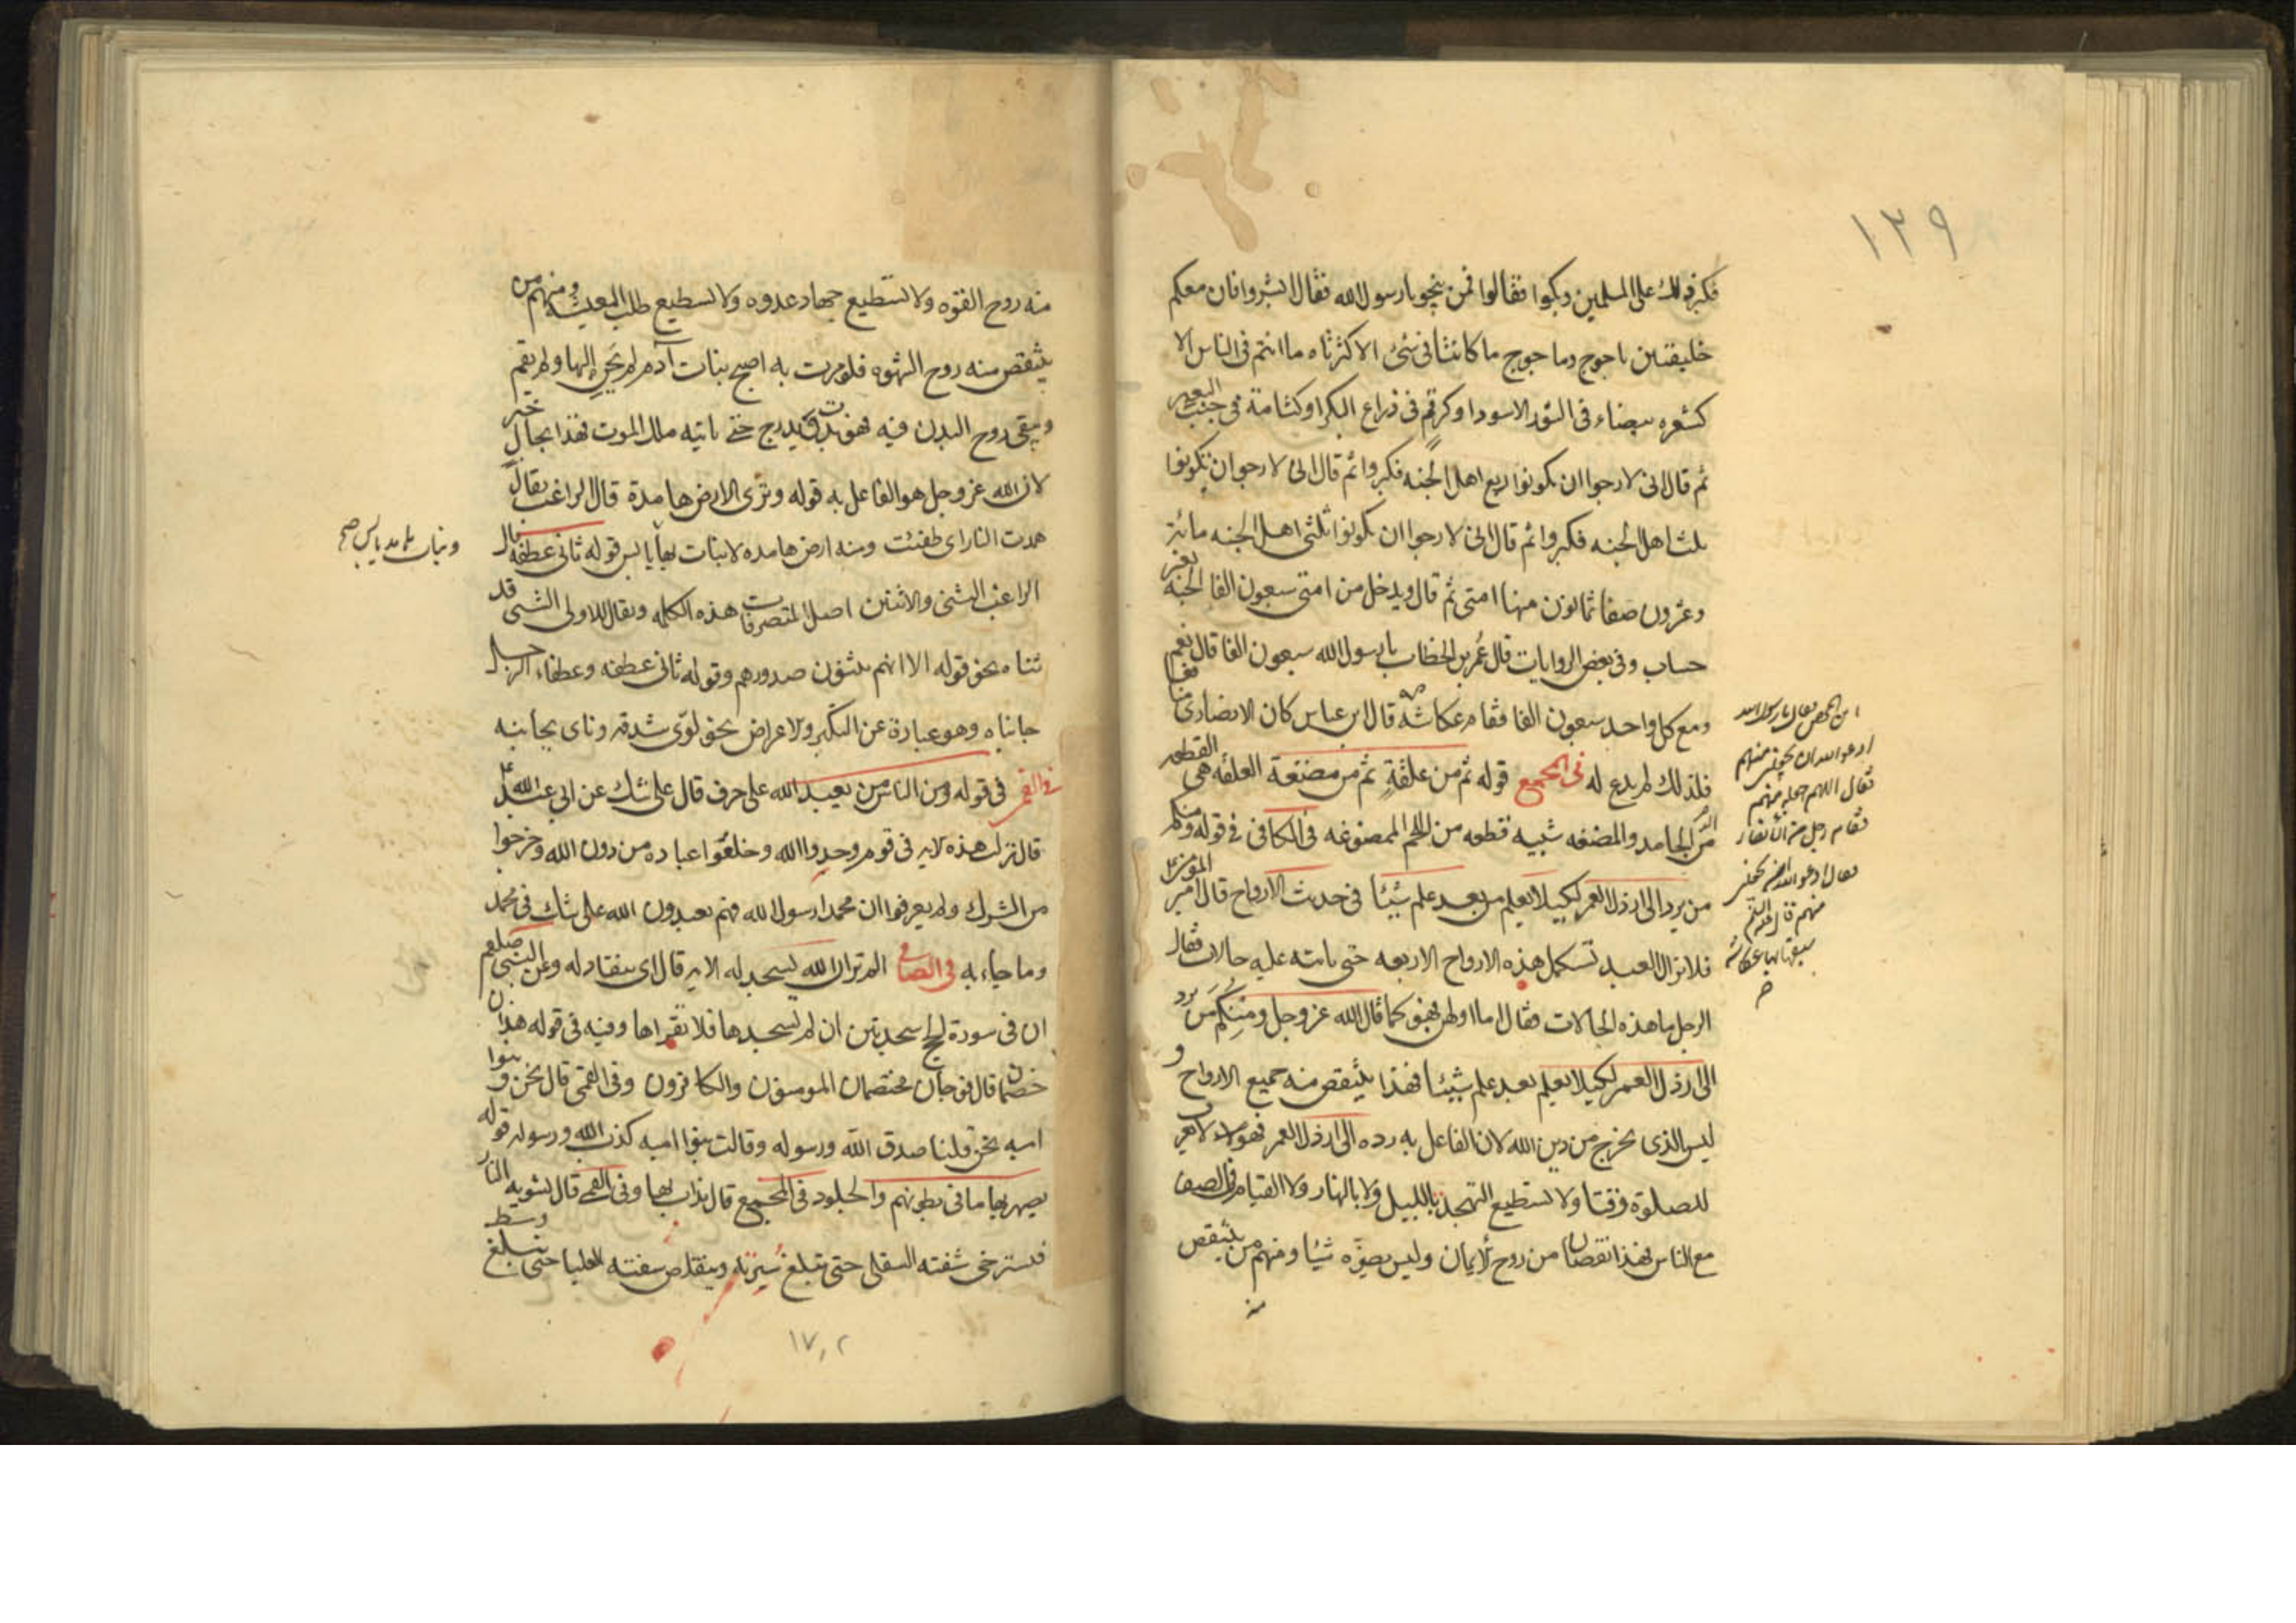 ١٣٩
فكبر ذلك على المسلمين وبكوا فقالوا فمن ينجو يا رسول الله فقال ابشروا فان معكم
خليقتين ياجوج وماجوج ما كانتا في شئ الا كثرتاه ما انتم في الناس الا
كشعره بيضاء في الثور الاسود او كرقم في ذراع البكر او كشامة في جنب البعير
ثم قال اني لارجو ان تكونوا ربع اهل الجنه فكبروا ثم قال اني لارجو ان تكونوا
ثلث اهل الجنه فكبروا ثم قال اني لارجو ان تكونوا ثلثي اهل الجنه مائة
وعشرون صفا ثمانون منها امتي ثم قال ويدخل من امتي سبعون الفا الجنة بغير
حساب وفي بعض الروايات قال عمر بن الخطاب يا رسول الله سبعون الفا قال نعم
ومع كل واحد سبعون الفا فقام عكاشه قال ابن عباس كان الانصاري منافقا
فلذلك لم يدع له في المجمع قوله ثم من علقة ثم من مضغة العلقه هي القطعه
من الدم الجامد والمضغه شبيه قطعه من اللحم الممضوغه في الكافي في قوله ومنكم
من يرد الى ارذل العمر لكيلا يعلم من بعد علم شيئا في حديث الارواح قال امير المؤمنين
فلا يزال العبد تستكمل هذه الارواح الاربعه حتى ياتيه عليه حالات فقال
الرجل ما هذه الحالات فقال اما اولهن فهو كما قال الله عز وجل ومنكم من يرد
الى ارذل العمر لكيلا يعلم بعد علم شيئا فهذا ينتقص منه جميع الارواح و
ليس الذي يخرج من دين الله لان الفاعل به رده الى ارذل العمر فهو لا يعرف
للصلوة وقتا ولا تستطيع التهجد بالليل ولا بالنهار ولا القيام في الصف
مع الناس فهذا نقصان من روح الايمان وليس يضره شيئا ومنهم من ينتقص
منه
ابن محصن فقال يا رسول الله
ادعو الله ان يجعلني منهم
فقال اللهم اجعله منهم
فقام رجل من الانصار
فقال ادعو الله ان يجعلني
منهم فقال
سبقك بها عكاشه
منه روح القوه ولا تستطيع جهاد عدوه ولا تستطيع طلب المعيشه ومنهم من
ينتقص منه روح الشهوه فلو مرت به اصبح بنات آدم لم يحن اليها ولم يقم
ويبقى روح البدن فيه فهو يدب ويدرج حتى ياتيه ملك الموت فهذا بحال خير
لان الله عز وجل هو الفاعل به قوله وترى الارض هامدة قال الراغب يقال
همدت النار اي طفئت ومنه ارض هامده لا نبات بها يابس قوله ثاني عطفه قال
ونبات هامد يابس صح
الراغب الثني والاثنين اصل لمتصرفات هذه الكلمه ويقال للاوي الشئ قد
ثناه نحو قوله الا انهم يثنون صدورهم وقوله ثاني عطفه وعطفاء الرجل
جانباه وهو عبارة عن التكبر والاعراض نحو لوى شدقه وناى بجانبه
في القمي في قوله ومن الناس من يعبد الله على حرف قال على شك عن ابي عبد الله
قال نزلت هذه الايه في قوم وحدوا الله وخلعوا عباده من دون الله وخرجوا
من الشرك ولم يعرفوا ان محمدا رسول الله فهم يعبدون الله على شك في محمد
وما جاء به في الصافي الم تر ان الله يسجد له الايه قال اي ينقاد له وعن النبي صلعم
ان في سورة الحج سجدتين ان لم تسجدها فلا تقراها وفيه في قوله هذان
خصمان قال فوجان مختصمان المومنون والكافرون وفي القمي قال نحن وبنوا
اميه نحن قلنا صدق الله ورسوله وقالت بنوا اميه كذب الله ورسوله قوله
يصهر بها ما في بطونهم والجلود في المجمع قال يذاب بها وفي القمي قال تشويه النار
فتسترخي شفته السفلى حتى تبلغ سرته ويتقلص شفته العليا حتى تبلغ وسط
١٧٠٢